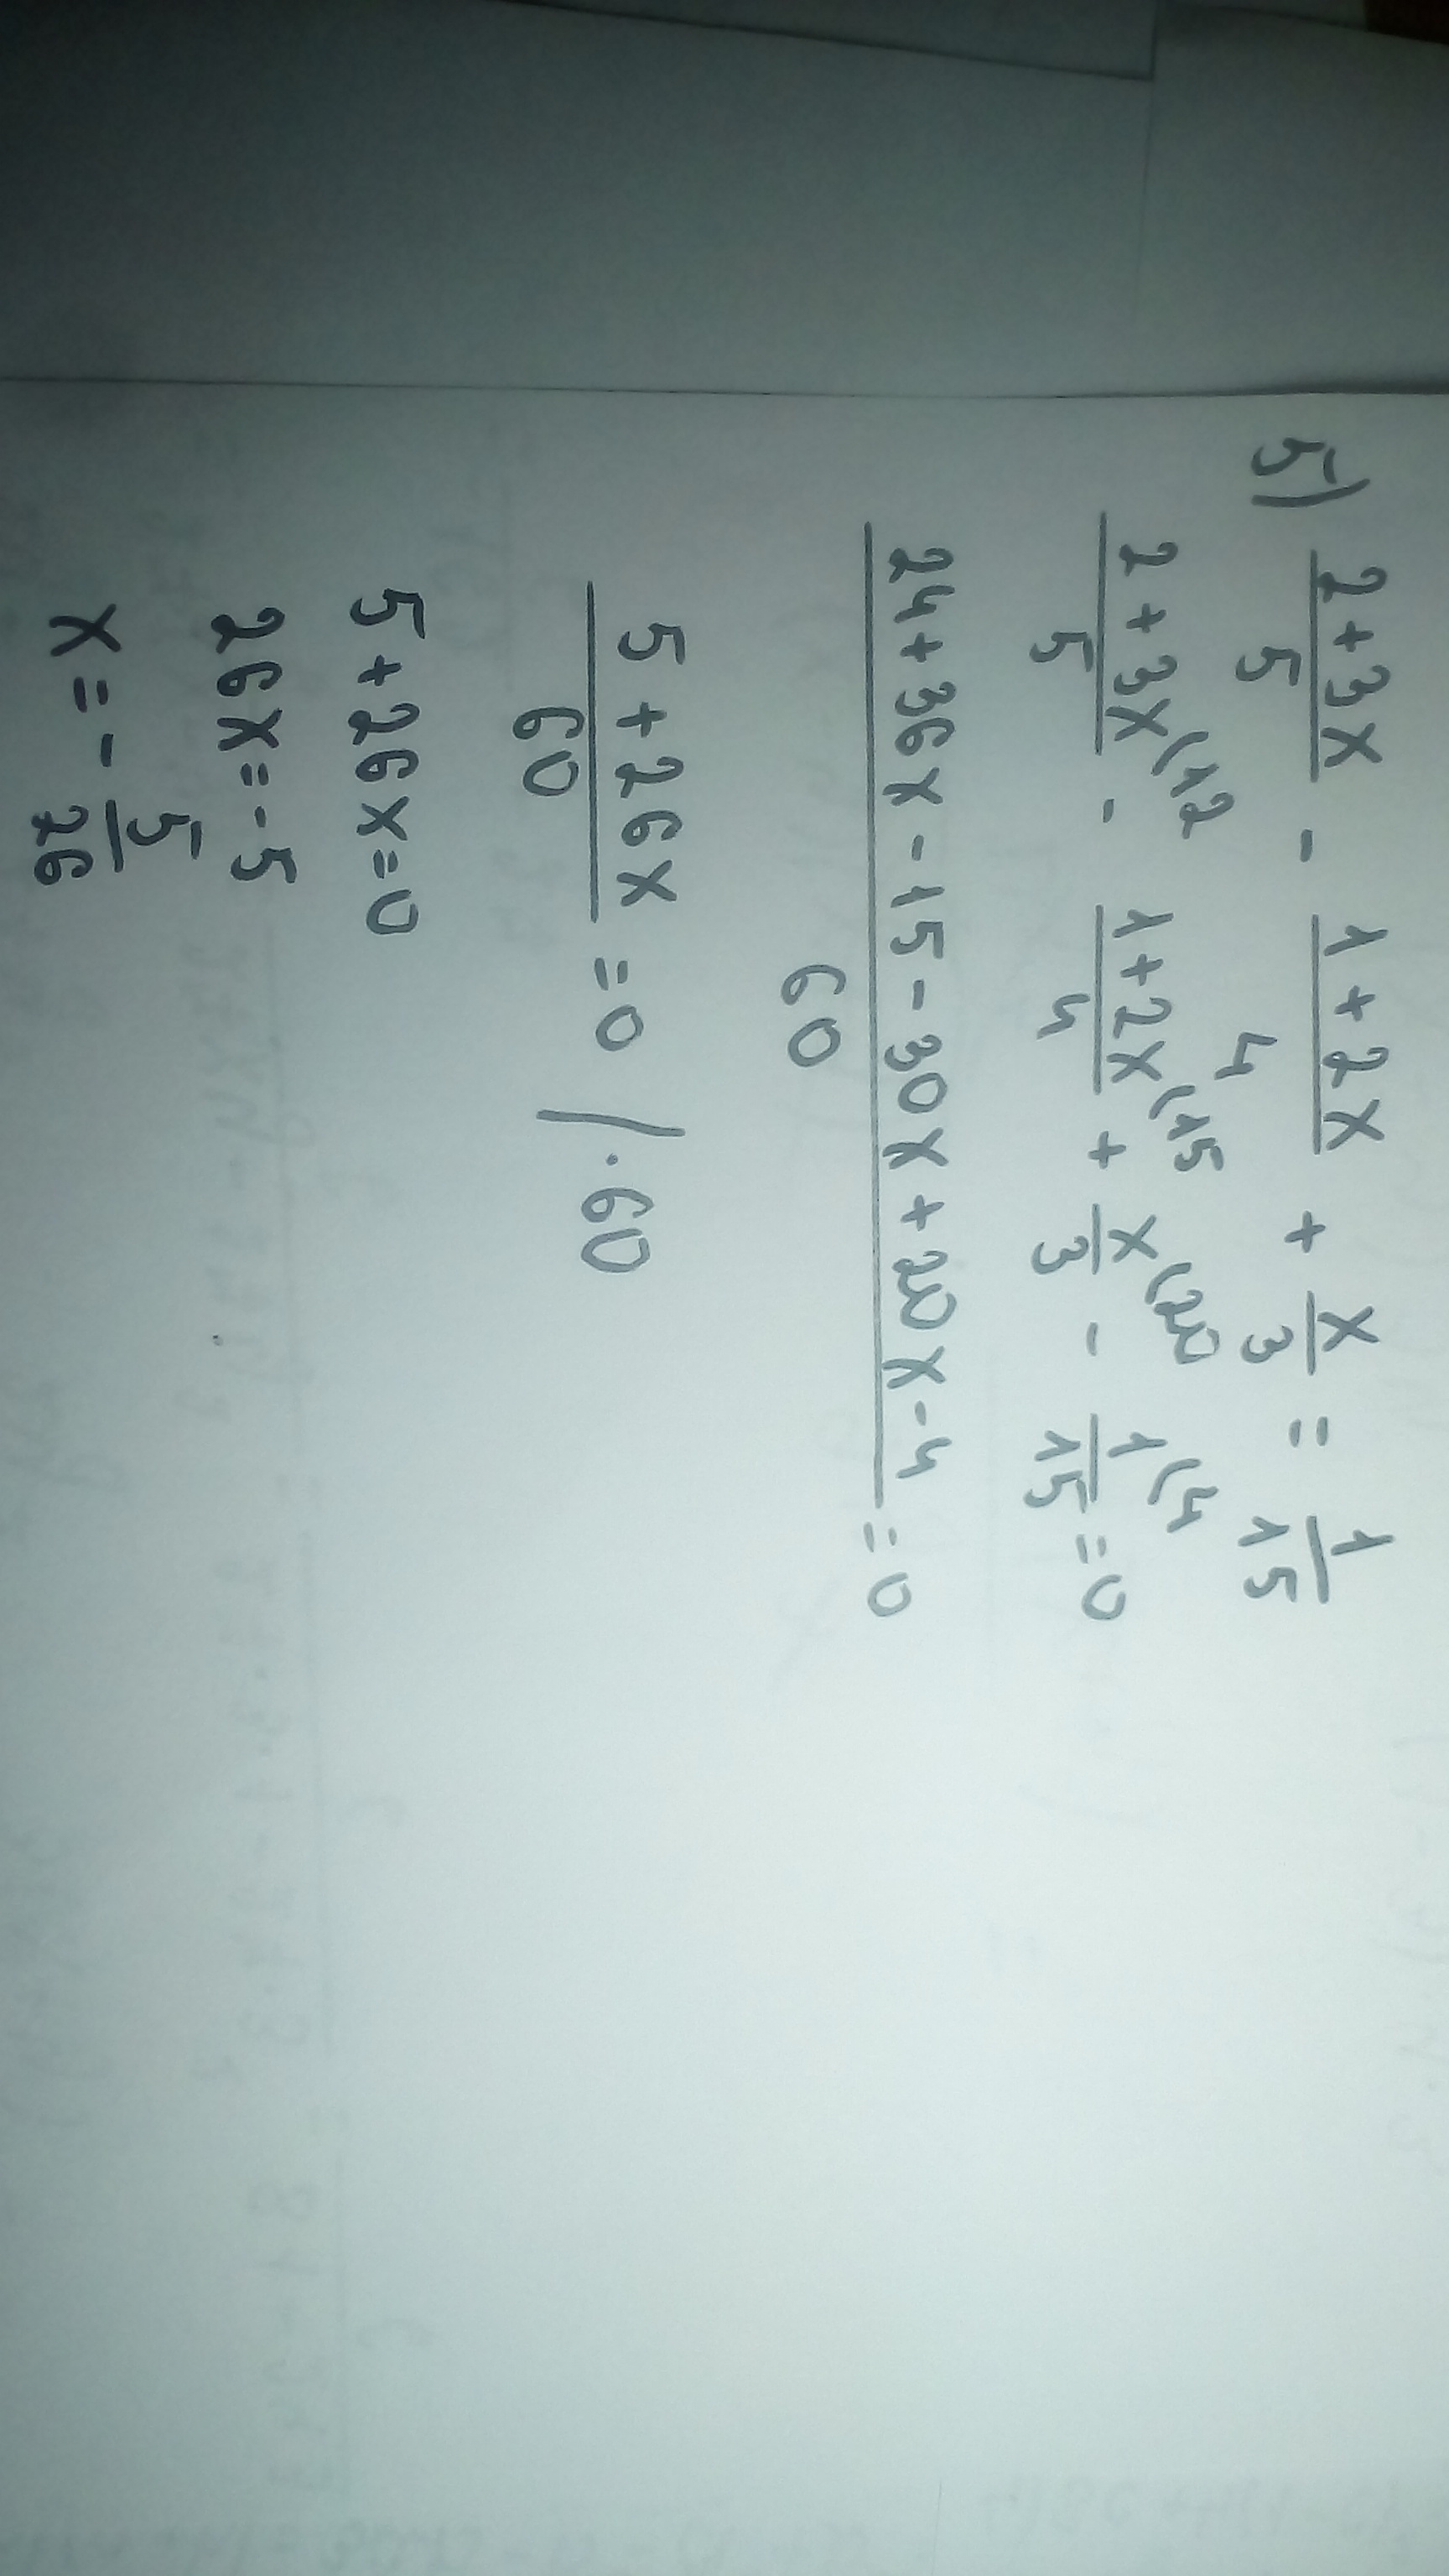 5) (2+3x)/5 - (1+2x)/4 + x/3 = 1/15
(2+3x)/5 (12 - (1+2x)/4 (15 + x/3 (20 - 1/15 (4 = 0
(24+36x-15-30x+20x-4)/60 = 0
(5+26x)/60 = 0 /·60
5+26x=0
26x=-5
x=-5/26